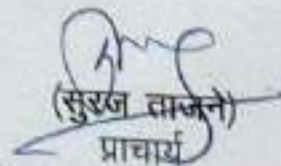 (सुरज ताजने)
प्राचार्य